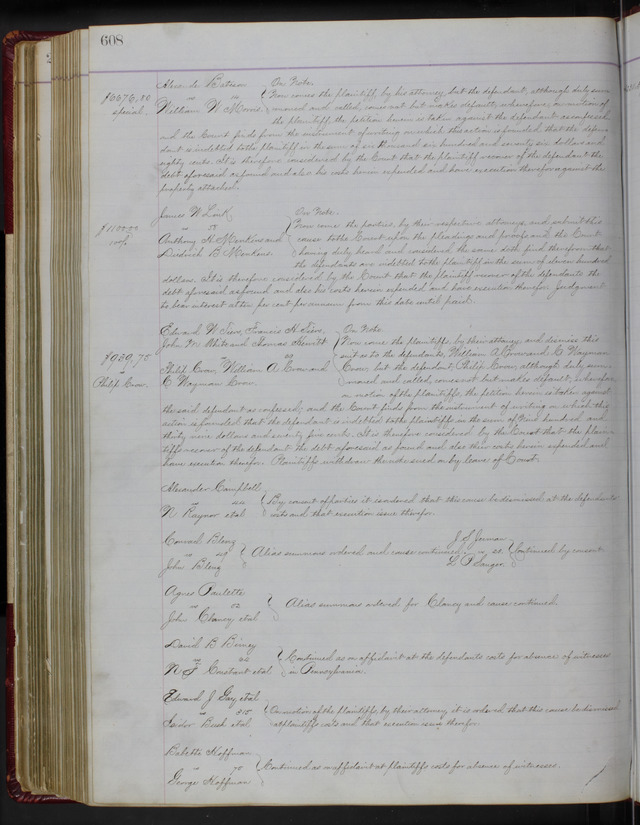 608
On Note.
$6676.80 special.
William W Morris.
Now comes the plaintiff by his attorney, but the defendant, although duly summoned and called, comes not but makes default; wherefore, on motion of
the plaintiff, the petition herein is taken against the defendant as confessed
and the Court finds from the instrument of writing on which this action is founded, that the defendant is indebted to the plaintiff in the sum of six thousand six hundred and seventy six dollars and
eighty cents. It is therefore considered by the Court that the plaintiff recover of the defendant the
debt aforesaid as found and also his costs herein expended and have execution therefor against the
property attached.
James W Link
On Note.
$1100.00
Now come the parties, by their respective attorneys, and submit this
cause to the Court upon the pleadings and proofs and the Court
having duly heard and considered the same doth find therefrom that
the defendants are indebted to the plaintiff in the sum of eleven hundred
dollars. It is therefore considered by the Court that the plaintiff recover of the defendants the
debt aforesaid as found and also his costs herein expended and have execution therefor. Judgment
to bear interest at ten per cent per annum from this date until paid.
On Note
$939.75
Philip Crow.
Now come the plaintiffs, by their attorney, and dismiss this
suit as to the defendants, William A Crow and C Wayman
Crow, but the defendant, Philip Crow, although duly summoned and called, comes not but makes default; wherefore,
on motion of the plaintiffs, the petition herein is taken against
the said defendant as confessed; and the Court finds from the instrument of writing on which this
action is founded that the defendant is indebted to the plaintiffs in the sum of Nine hundred and
thirty nine dollars and seventy five cents. It is therefore considered by the Court that the plaintiffs recover of the defendant the debt aforesaid as found and also their costs herein expended and
have execution therefor. Plaintiffs withdraw the note sued on by leave of Court.
Alexander Campbell
N Raynor et al
By consent of parties it is ordered that this cause be dismissed at the defendants
costs and that execution issue therefor.
Alias summons ordered and cause continued
Continued by consent
Agnes Paulette
52
John Clancy et al
Alias summons ordered for Clancy and cause continued.
David B Birney
Constant et al
Continued as on affidavit at the defendants costs for absence of witnesses
in Pennsylvania.
Edward J Gay et al
Isidor Bush et al
On motion of the plaintiffs, by their attorney, it is ordered that this cause be dismissed
at plaintiffs costs and that execution issue therefor.
Babette Hoffman
70
George Hoffman
Continued as on affidavit at plaintiffs costs for absence of witnesses.